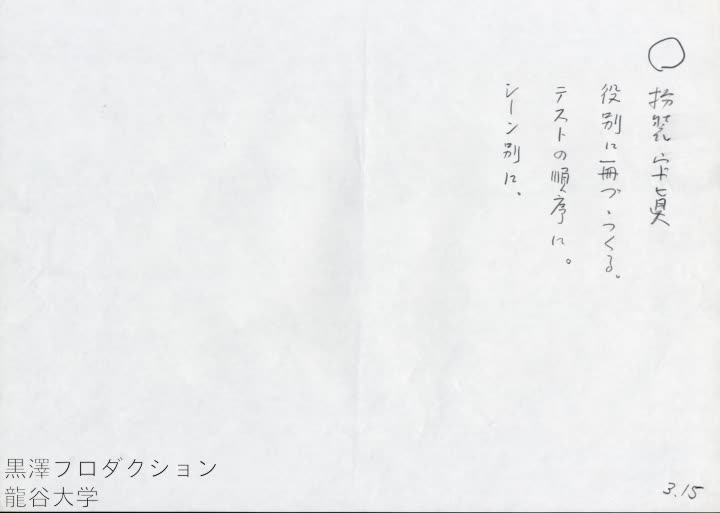 ○
扮装写真
役別に一冊づゝつくる。
テストの順序に。
シーン別に。
3.15
黒澤フロダクション
龍谷大学